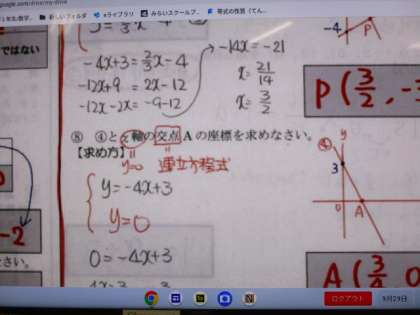 google.com/drive/my-drive
新しいフォルダ
eライブラリ
みらいスクールプ...
ではない
-4x+3 = 2/3x-4
-12x+9 = 2x-12
-12x-2x = -9-12
-14x = -21
x = 21/14
x = 3/2
-4
P
P(3/2, -3
⑤ ④とx軸の交点Aの座標を求めなさい。
【求め方】
y=0 連立方程式
y = -4x+3
y = 0
0 = -4x+3
④
y
3
0
A
-2
さい。
A(3/4, 0
ログアウト
9月29日